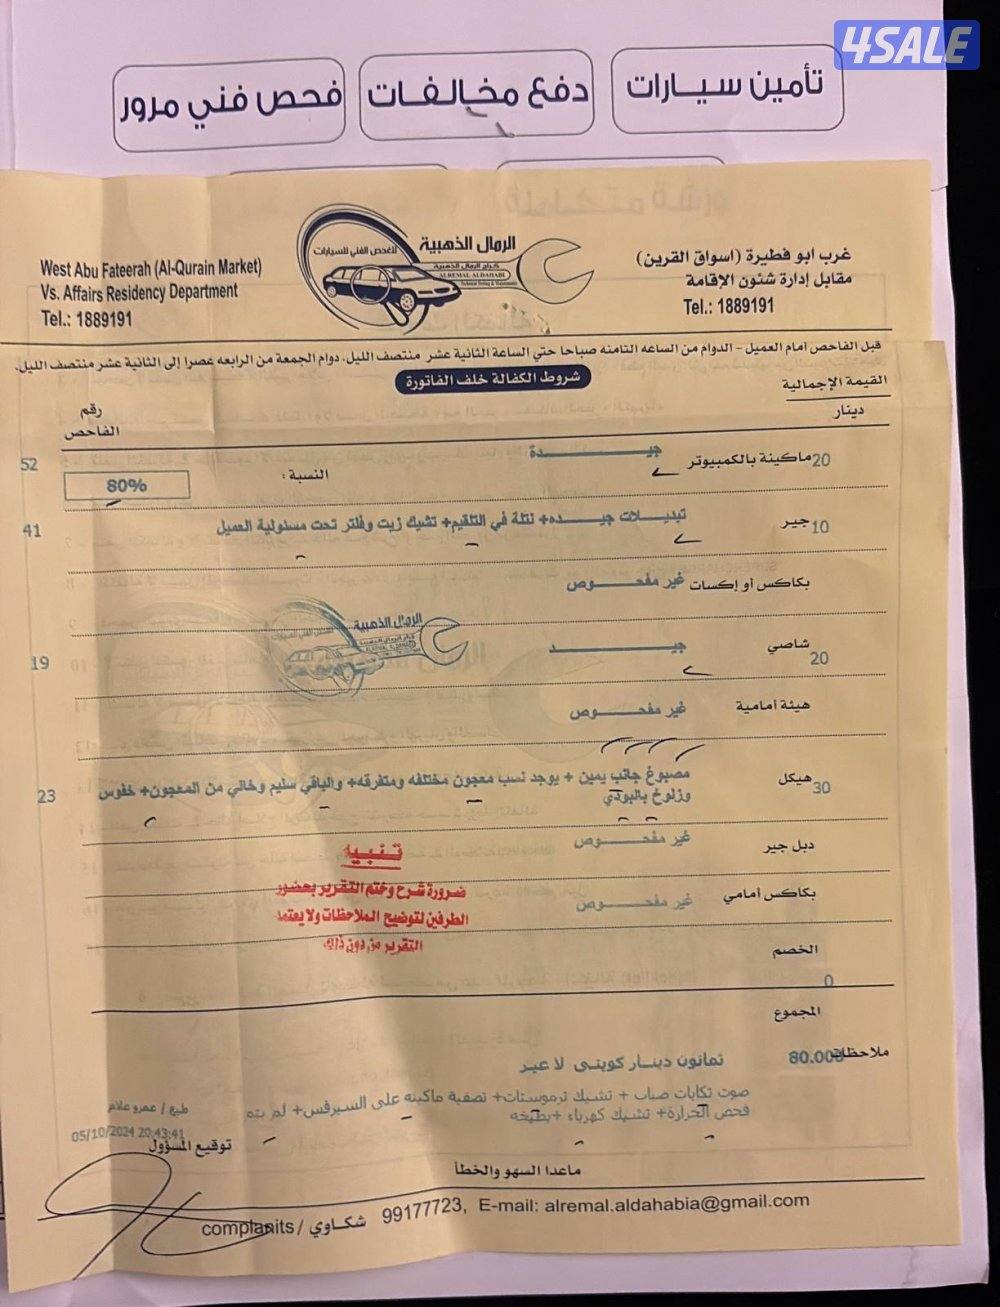 4SALE
تأمين سيارات
دفع مخالفات
فحص فني مرور
غرب ابو فطيرة (اسواق القرين)
مقابل إدارة شئون الإقامة
Tel.: 1889191
الرمال الذهبية
للفحص الفني للسيارات
كراج الرمال الذهبية
ALREMAL ALDAHABI
West Abu Fateerah (Al-Qurain Market)
Vs. Affairs Residency Department
Tel.: 1889191
قبل الفاحص أمام العميل - الدوام من الساعه الثامنه صباحا حتي الساعة الثانية عشر منتصف الليل. دوام الجمعة من الرابعه عصرا إلى الثانية عشر منتصف الليل.
شروط الكفالة خلف الفاتورة
القيمة الإجمالية
دينار
رقم الفاحص
20 ماكينة بالكمبيوتر جيـــدة 52
النسبة : 80%
10 جير تبديـلات جيـده+ نتلة في التلقيم+ تشيك زيت وفلتر تحت مسئولية العميل 41
بكاكس أو إكسات غير مفحـــوص
20 شاصي جيـــد 19
الرمال الذهبية
هيئة أمامية غير مفحـــوص
30 هيكل مصبوغ جانب يمين + يوجد نسب معجون مختلفه ومتفرقه+ والباقي سليم وخالي من المعجون+ خفوس 23
وزلوخ بالبودي
دبل جير غير مفحـــوص
بكاكس أمامي غير مفحـــوص
تنبيه
ضرورة شرح وختم التقرير بحضور
الطرفين لتوضيح الملاحظات ولا يعتمد
التقرير من دون ذلك
الخصم
0
المجموع
80.000 ثمانون دينـار كويتى لا غير
ملاحظات
صوت تكايات صباب + تشيك ترموستات+ تصفية ماكينه على السيرفس+ لم يتم
فحص الحرارة+ تشيك كهرباء +بطيخه
طبع / عمرو علام
05/10/2024 20:43:41
توقيع المسؤول
ماعدا السهو والخطأ
complanits / شكاوي 99177723, E-mail: alremal.aldahabia@gmail.com